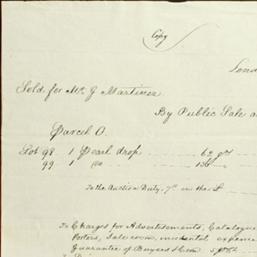 Copy
Lond
Sold for Mr J Martinez
By Public Sale a
Parcel O.
Lot 98 1 Pearl drop 62 grs
99 1 do 136
To the Auction Duty, 7d in the £
To Charges for Advertisements, Catalogue
Porters, Saleroom, incidental expense
Guarantee of Buyers &